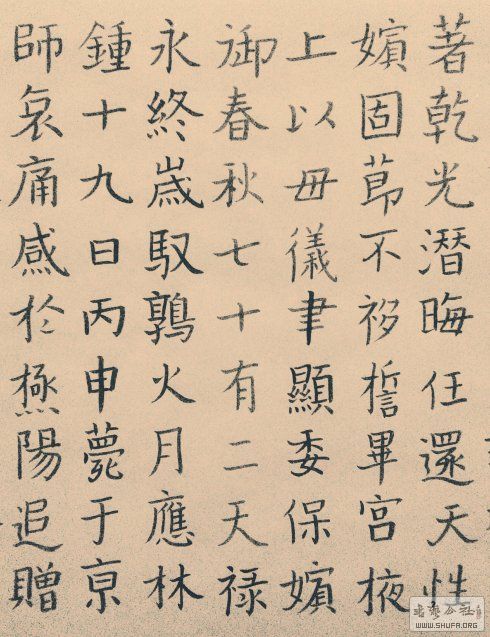 著乾光潛晦任還天性
嬪固莭不移誓畢宮掖
上以母儀聿顯委保嬪
御春秋七十有二天祿
永終歲馭鶉火月應林
鍾十九日丙申薨于亰
師哀痛感於極陽追贈
WWW.SHUFA.ORG